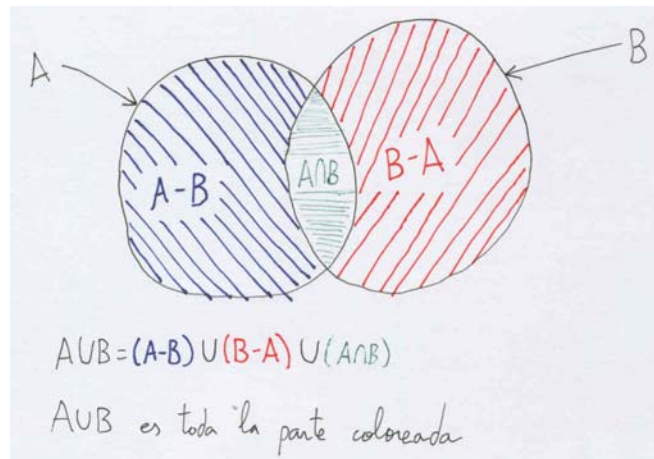 A
B
A-B
A∩B
B-A
A∪B=(A-B)∪(B-A)∪(A∩B)
A∪B es toda la parte coloreada